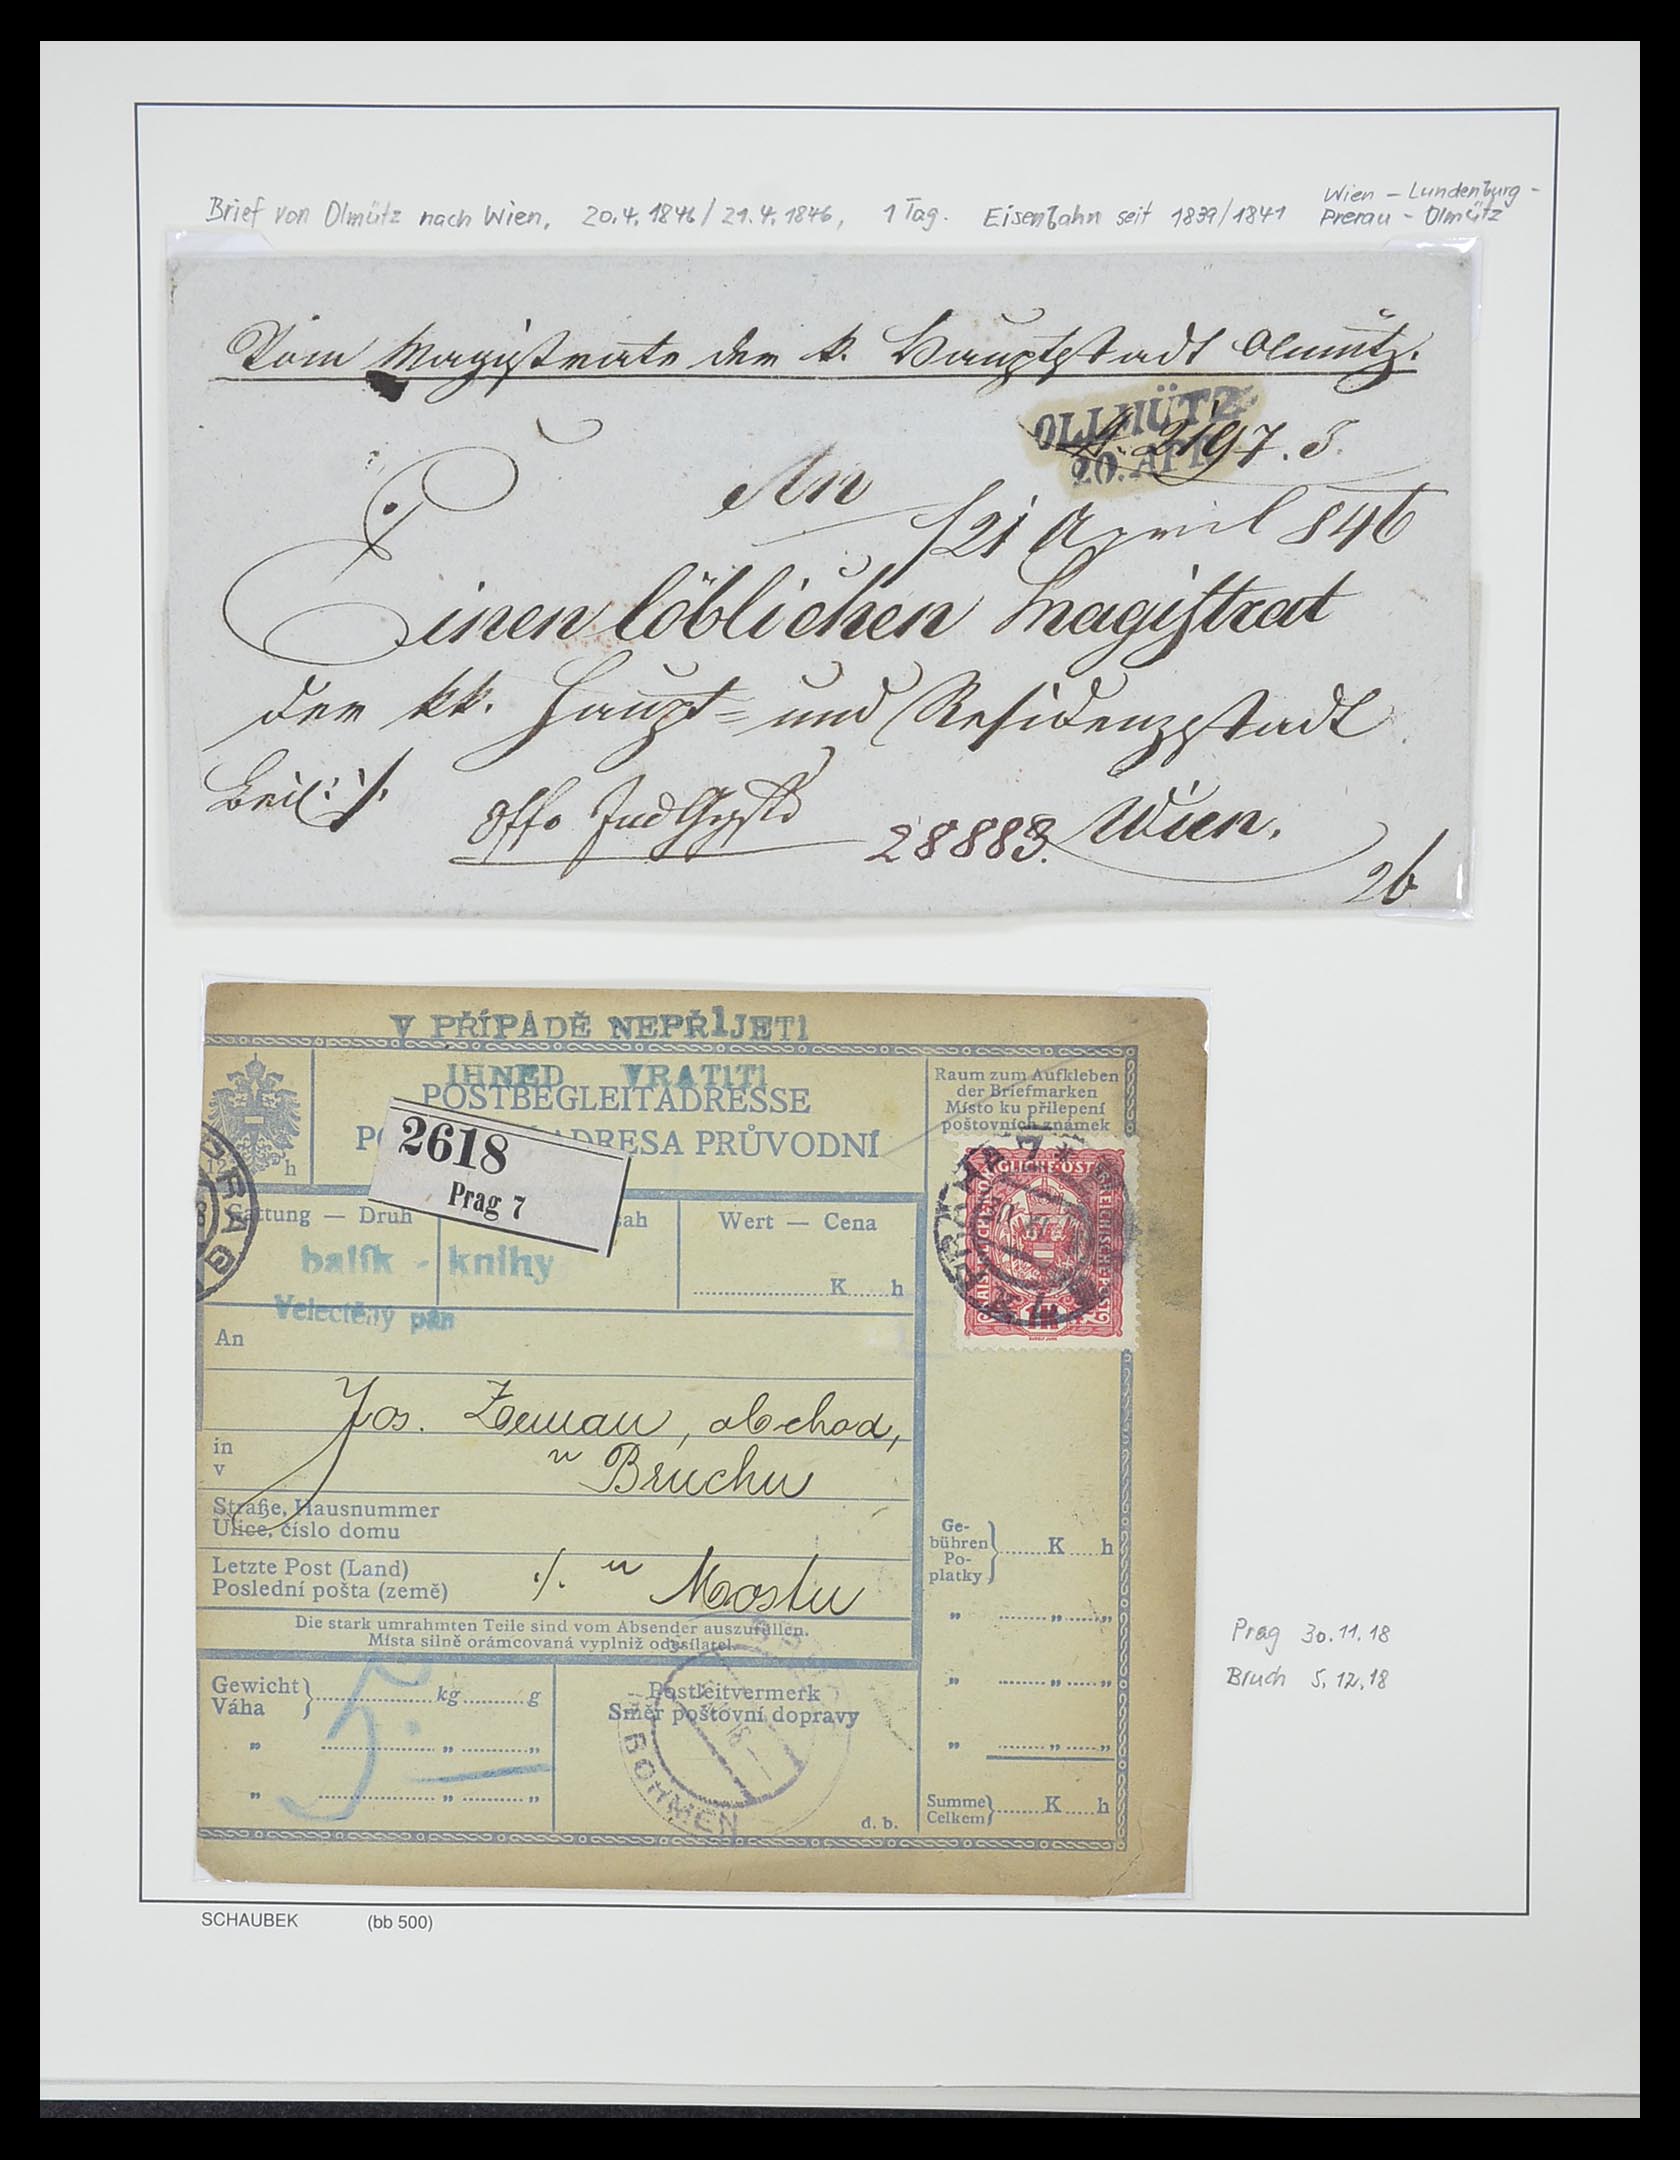 Wien – Lundenburg –
Brief von Olmütz nach Wien, 20.4.1846/21.4.1846, 1 Tag. Eisenbahn seit 1839/1841 Prerau – Olmütz
Vom Magistrate der k. Hauptstadt Olmütz.
OLLMÜTZ
20. APR
2197.
An
21 April 846
Einen löblichen Magistrat
der kk. Haupt= und Residenzstadt
Beil: 1/.
28883. Wien.
26
V PŘÍPADĚ NEPŘIJETI
IHNED VRATITI
POSTBEGLEITADRESSE
ADRESA PRŮVODNÍ
12 h
2618
Prag 7
Raum zum Aufkleben
der Briefmarken
Místo ku přilepení
poštovních známek
Gattung — Druh
Wert — Cena
K h
balík - knihy
Velectěný pán
1K
PRAG
An
Jos. Zeman, obchod,
in
v
v Bruchu
Straße, Hausnummer
Ulice, číslo domu
Letzte Post (Land)
Poslední pošta (země)
./. u Mostu
Die stark umrahmten Teile sind vom Absender auszufüllen.
Místa silně orámcovaná vyplniž odesílatel.
Gewicht
Váha
kg g
5.
Postleitvermerk
Směr poštovní dopravy
BÖHMEN
d. b.
Ge-
bühren
Po-
platky
K h
Summe
Celkem
K h
Prag 30.11.18
Bruch 5.12.18
SCHAUBEK (bb 500)